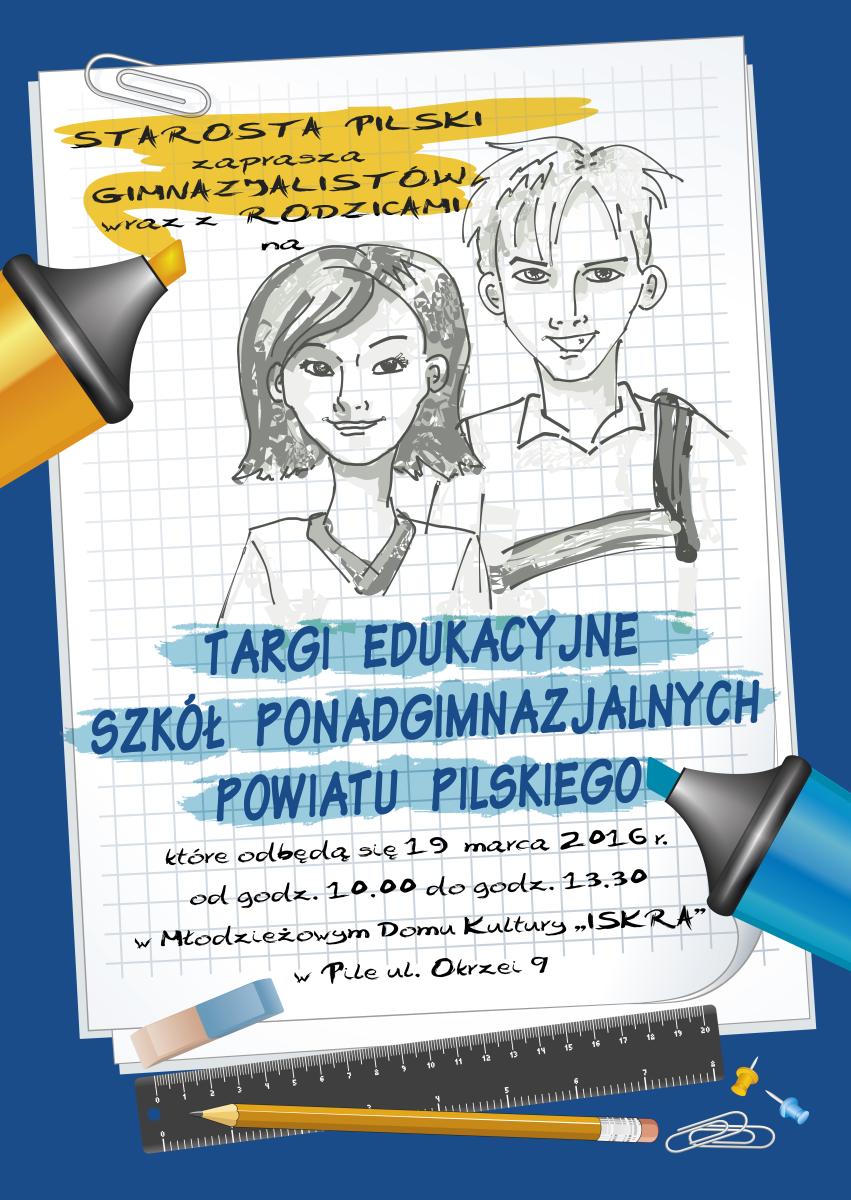 STAROSTA PILSKI
zaprasza
GIMNAZJALISTÓW
wraz z RODZICAMI
na
TARGI EDUKACYJNE
SZKÓŁ PONADGIMNAZJALNYCH
POWIATU PILSKIEGO
które odbędą się 19 marca 2016 r.
od godz. 10.00 do godz. 13.30
w Młodzieżowym Domu Kultury „ISKRA”
w Pile ul. Okrzei 9
0 1 2 3 4 5 6 7 8 9 10 11 12 13 14 15 16 17 18 19 20
0 1 2 3 4 5 6 7 8